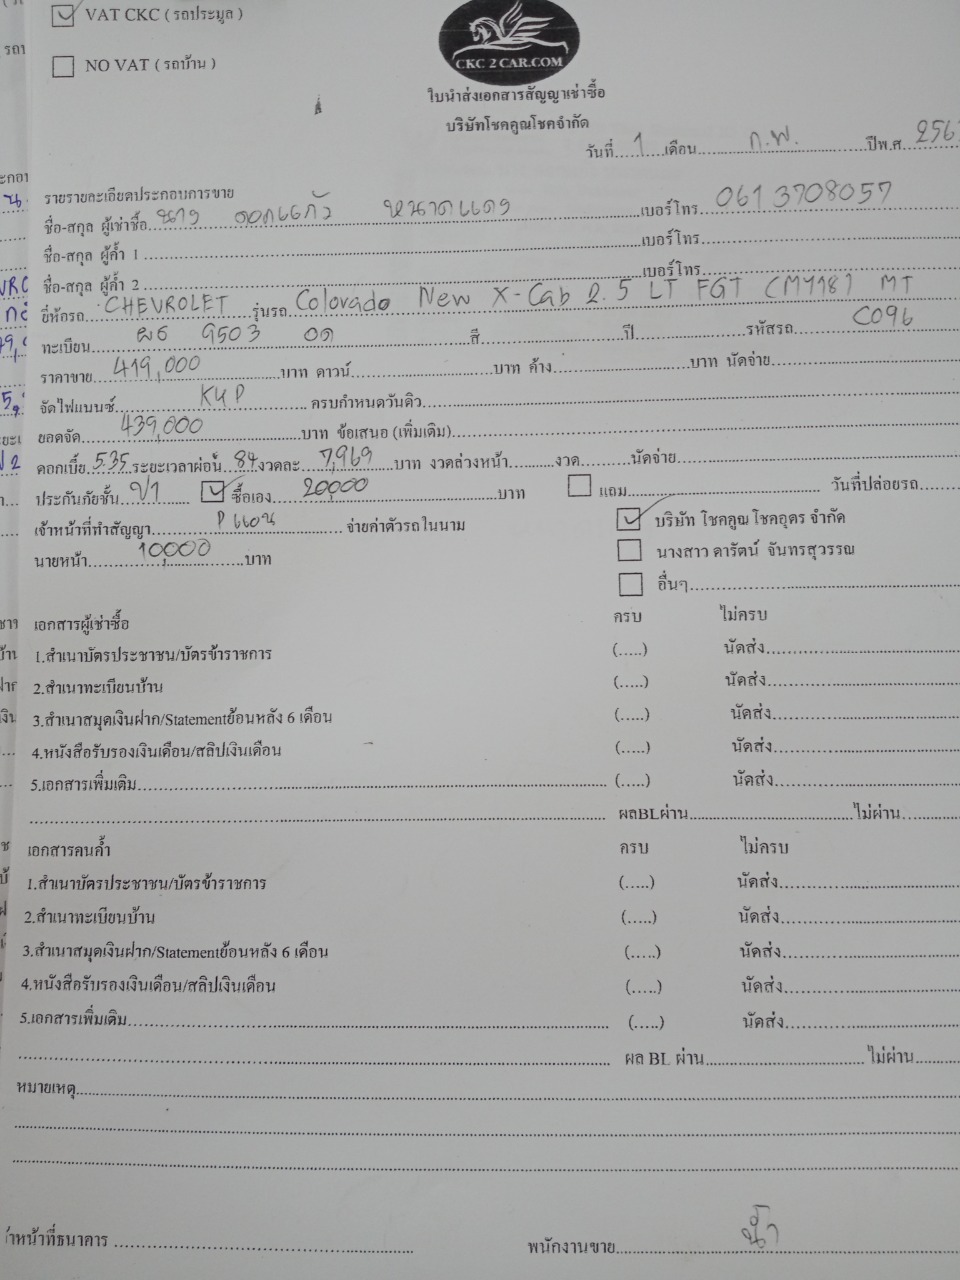 VAT CKC ( รถประมูล )
NO VAT ( รถบ้าน )
CKC 2 CAR.COM
ใบนำส่งเอกสารสัญญาเช่าซื้อ
บริษัทโชคคูณโชคจำกัด
วันที่.....1.....เดือน.....ก.พ......ปีพ.ศ.....
รายรายละเอียดประกอบการขาย
ชื่อ-สกุล ผู้เช่าซื้อ.....นาง ดอกแก้ว หนาดแดง.....เบอร์โทร.....061 3708057
ชื่อ-สกุล ผู้ค้ำ 1.....เบอร์โทร.....
ชื่อ-สกุล ผู้ค้ำ 2.....เบอร์โทร.....
ยี่ห้อรถ.....CHEVROLET.....รุ่นรถ.....Colorado New X-Cab 2.5 LT FGT (MY18) MT
ทะเบียน.....ผธ 9503 อด.....สี.....ปี.....รหัสรถ.....C096
ราคาขาย.....419,000.....บาท ดาวน์.....บาท ค้าง.....บาท นัดจ่าย.....
จัดไฟแนนซ์.....KKP.....ครบกำหนดวันดิว.....
ยอดจัด.....439,000.....บาท ข้อเสนอ (เพิ่มเติม).....
ดอกเบี้ย.....5.35.....ระยะเวลาผ่อน.....84.....งวดละ.....7,969.....บาท งวดล่วงหน้า.....งวด.....นัดจ่าย.....
ประกันภัยชั้น.....ป1.....ซื้อเอง.....20000.....บาท แถม.....วันที่ปล่อยรถ.....
เจ้าหน้าที่ทำสัญญา.....P แอน.....จ่ายค่าตัวรถในนาม บริษัท โชคคูณ โชคอุดร จำกัด
นายหน้า.....10,000.....บาท นางสาว ดารัตน์ จันทรสุวรรณ
อื่นๆ.....
เอกสารผู้เช่าซื้อ ครบ ไม่ครบ
1.สำเนาบัตรประชาชน/บัตรข้าราชการ (.....) นัดส่ง.....
2.สำเนาทะเบียนบ้าน (.....) นัดส่ง.....
3.สำเนาสมุดเงินฝาก/Statementย้อนหลัง 6 เดือน (.....) นัดส่ง.....
4.หนังสือรับรองเงินเดือน/สลิปเงินเดือน (.....) นัดส่ง.....
5.เอกสารเพิ่มเติม..... (.....) นัดส่ง.....
.....ผลBLผ่าน.....ไม่ผ่าน.....
เอกสารคนค้ำ ครบ ไม่ครบ
1.สำเนาบัตรประชาชน/บัตรข้าราชการ (.....) นัดส่ง.....
2.สำเนาทะเบียนบ้าน (.....) นัดส่ง.....
3.สำเนาสมุดเงินฝาก/Statementย้อนหลัง 6 เดือน (.....) นัดส่ง.....
4.หนังสือรับรองเงินเดือน/สลิปเงินเดือน (.....) นัดส่ง.....
5.เอกสารเพิ่มเติม..... (.....) นัดส่ง.....
.....ผล BL ผ่าน.....ไม่ผ่าน.....
หมายเหตุ.....
หน้าที่ธนาคาร.....
พนักงานขาย.....น้ำ